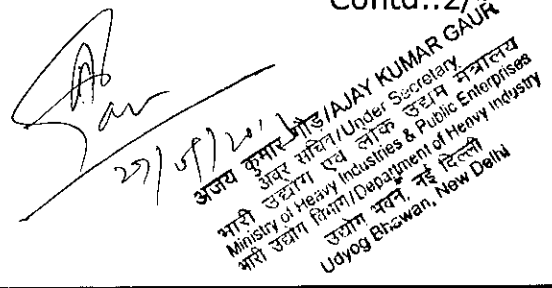 Contd..2/
27/
अजय कुमार गौड़/AJAY KUMAR GAUR
अवर सचिव/Under Secretary
भारी उद्योग एवं लोक उद्यम मंत्रालय
Ministry of Heavy Industries & Public Enterprises
भारी उद्योग विभाग/Department of Heavy Industry
उद्योग भवन, नई दिल्ली
Udyog Bhawan, New Delhi